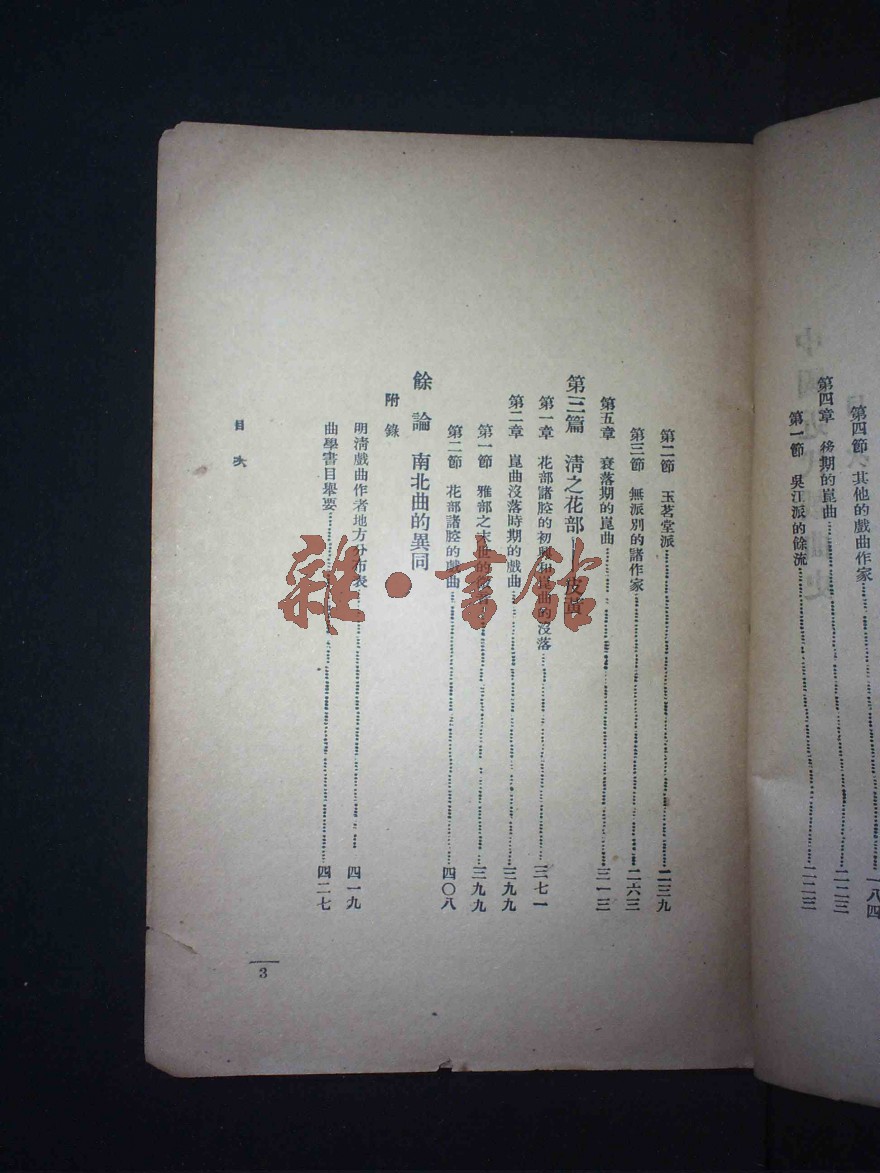 第四節 其他的戲曲作家……一八四
第四章 務期的崑曲……二二三
第一節 吳江派的餘流……二二三
第二節 玉茗堂派……二三九
第三節 無派別的諸作家……二六三
第五章 衰落期的崑曲……三一三
第三篇 清之花部 皮黃
第一章 花部諸腔的初興和崑曲的沒落……三七一
第二章 崑曲沒落時期的戲曲……三九九
第一節 雅部之末世的……三九九
第二節 花部諸腔的戲曲……四〇八
餘論 南北曲的異同
附錄
明清戲曲作者地方分布表……四一九
曲學書目舉要……四二七
目次
3
雜·書館